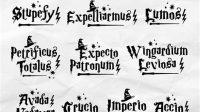 Stupefy
Expelliarmus
Lumos
Petrificus
Totalus
Expecto
Patronum
Wingardium
Leviosa
Avada
Crucio
Imperio
Accio